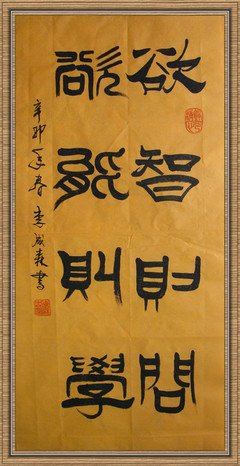 欲智則問
欲能則學
辛卯年春 李成森書